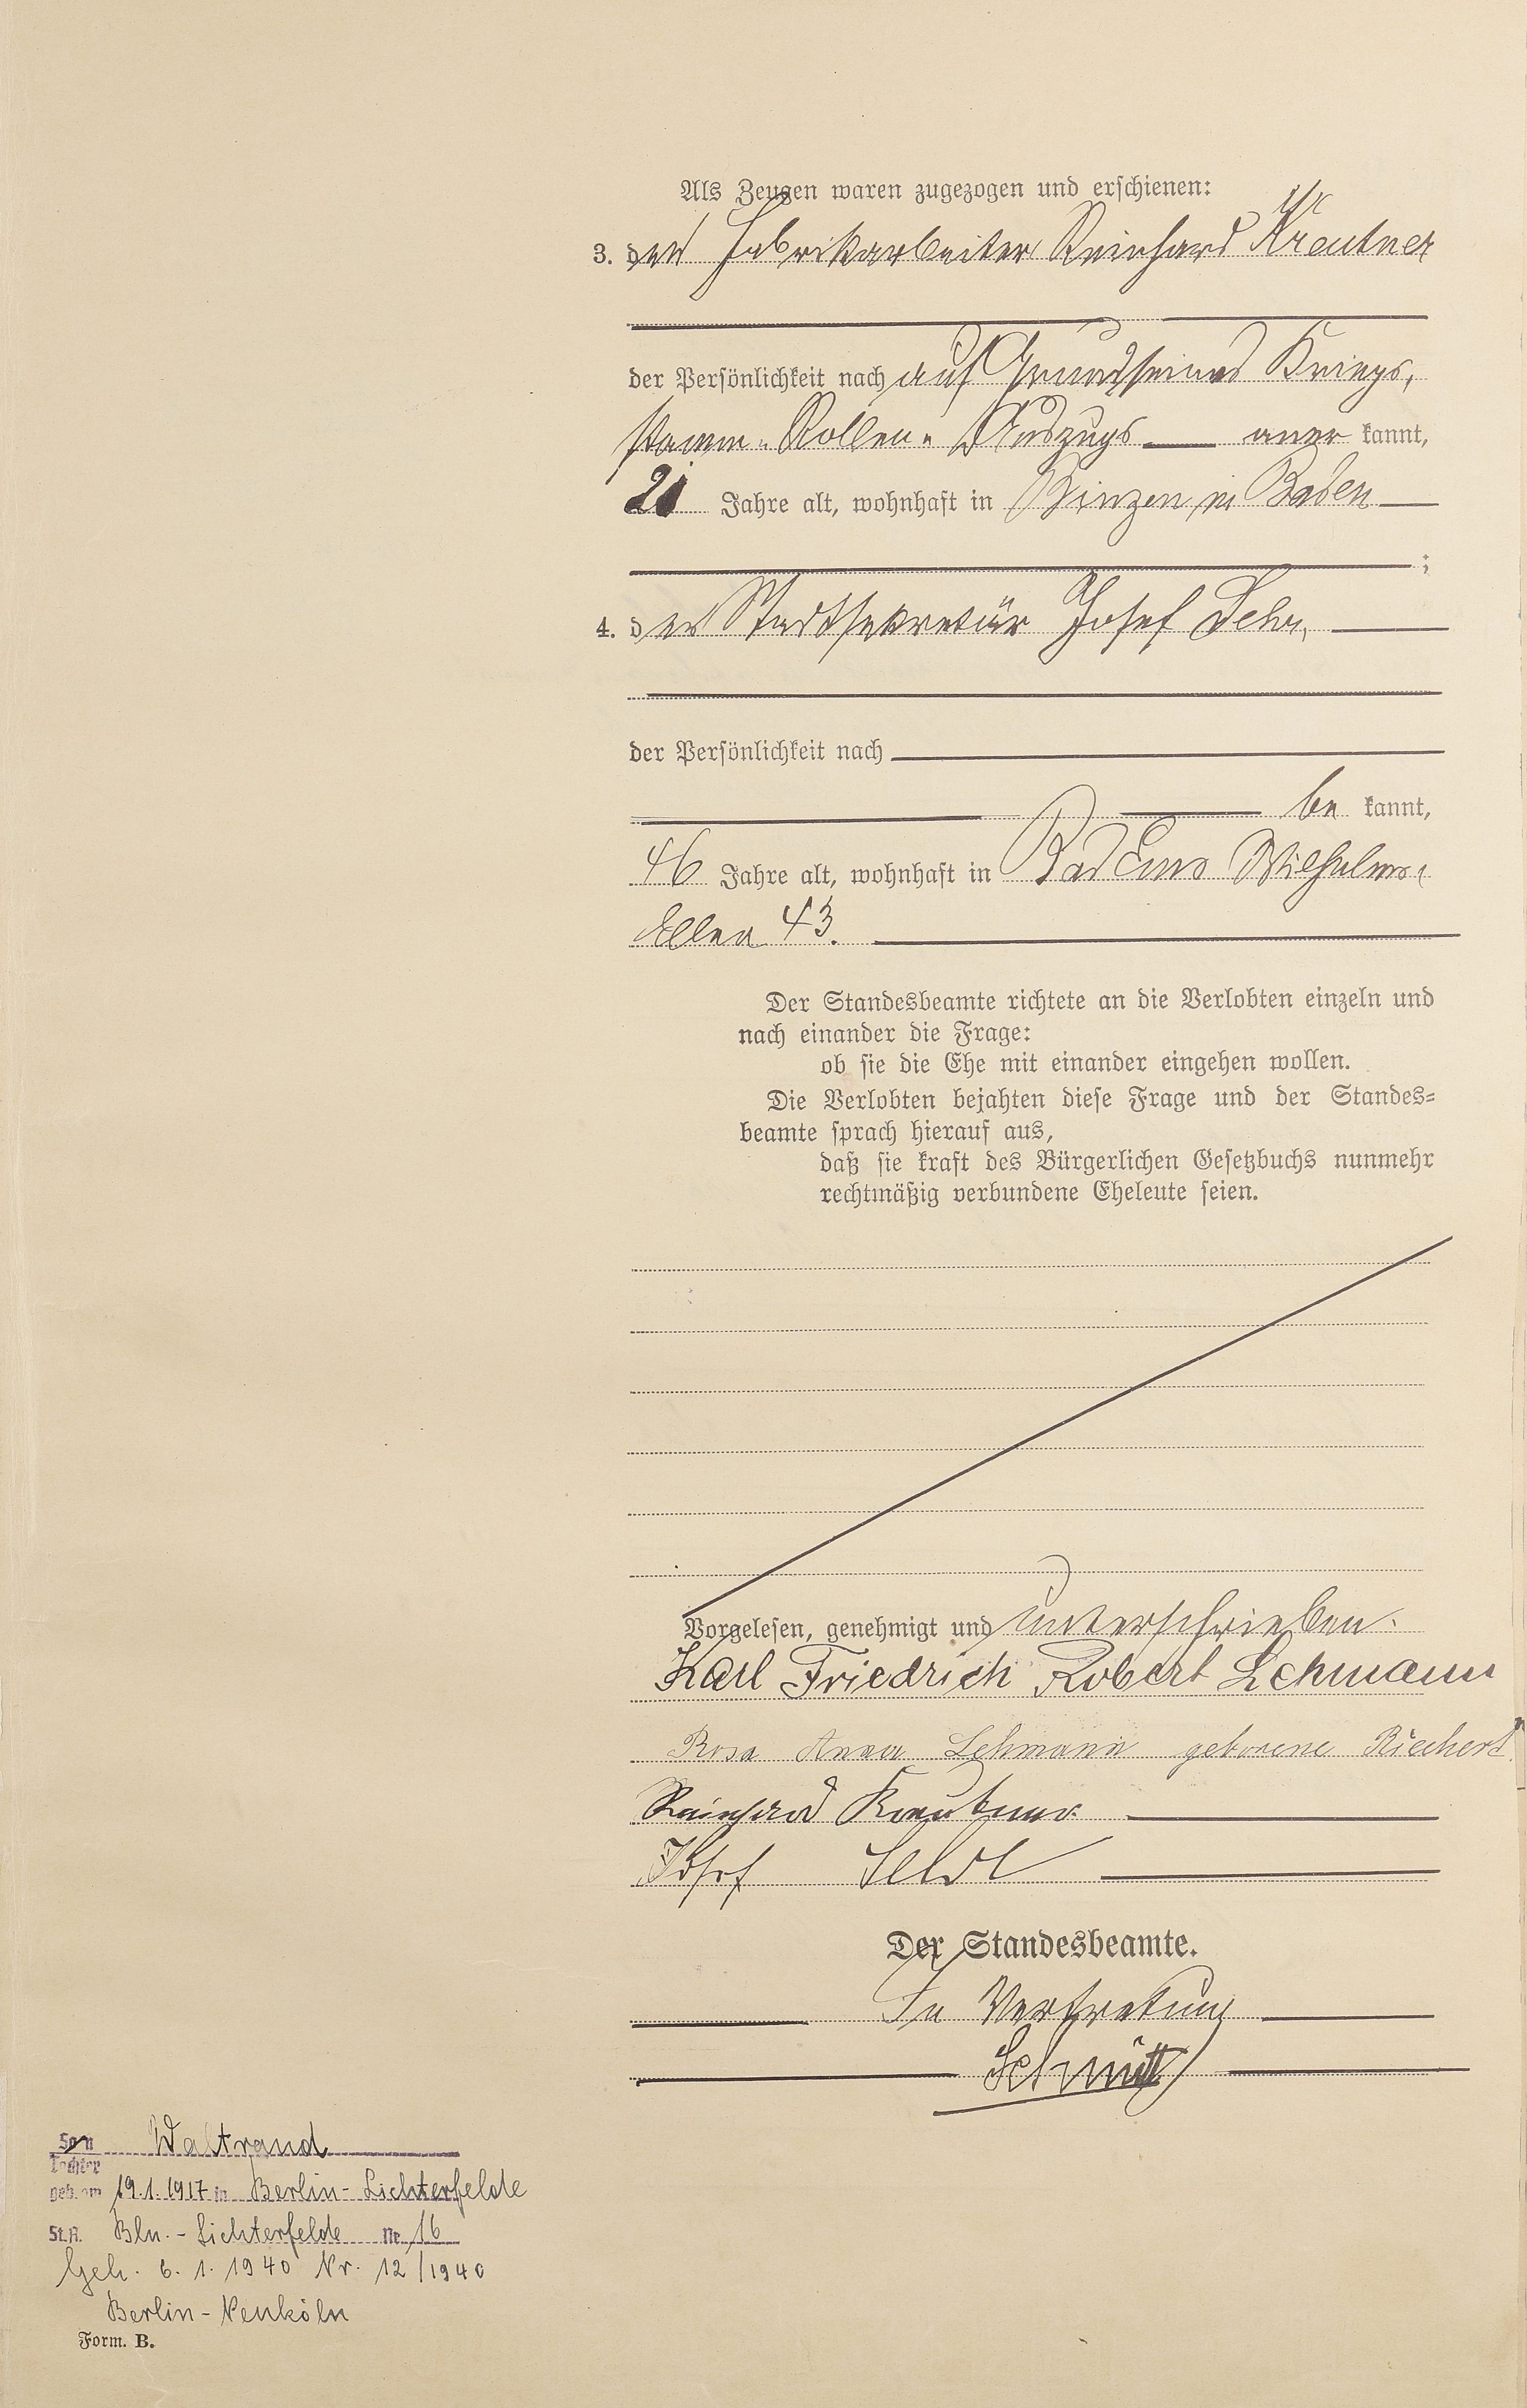 Als Zeugen waren zugezogen und erschienen:
3. der Fabrikarbeiter Reinhard Kreutner
der Persönlichkeit nach auf Grund seines Kriegs-
stamm-Rollen-Auszugs aner kannt,
21 Jahre alt, wohnhaft in Binzen in Baden
;
4. der Stadtsekretär Josef
der Persönlichkeit nach
be kannt,
46 Jahre alt, wohnhaft in Bad Ems Wilhelms-
Allee 43.
Der Standesbeamte richtete an die Verlobten einzeln und
nach einander die Frage:
ob sie die Ehe mit einander eingehen wollen.
Die Verlobten bejahten diese Frage und der Standes-
beamte sprach hierauf aus,
daß sie kraft des Bürgerlichen Gesetzbuchs nunmehr
rechtmäßig verbundene Eheleute seien.
Vorgelesen, genehmigt und unterschrieben.
Karl Friedrich Robert Lehmann
Rosa Anna Lehmann geborene Riechert
Reinhard Kreutner
Josef
Der Standesbeamte.
In Vertretung
Schmitt
Sohn Waltraud
Tochter
geb. am 19.1.1917 in Berlin-Lichterfelde
St.A. Bln.-Lichterfelde Nr. 16
Geh. 6. 1. 1940 Nr. 12/1940
Berlin-Neukölln
Form. B.